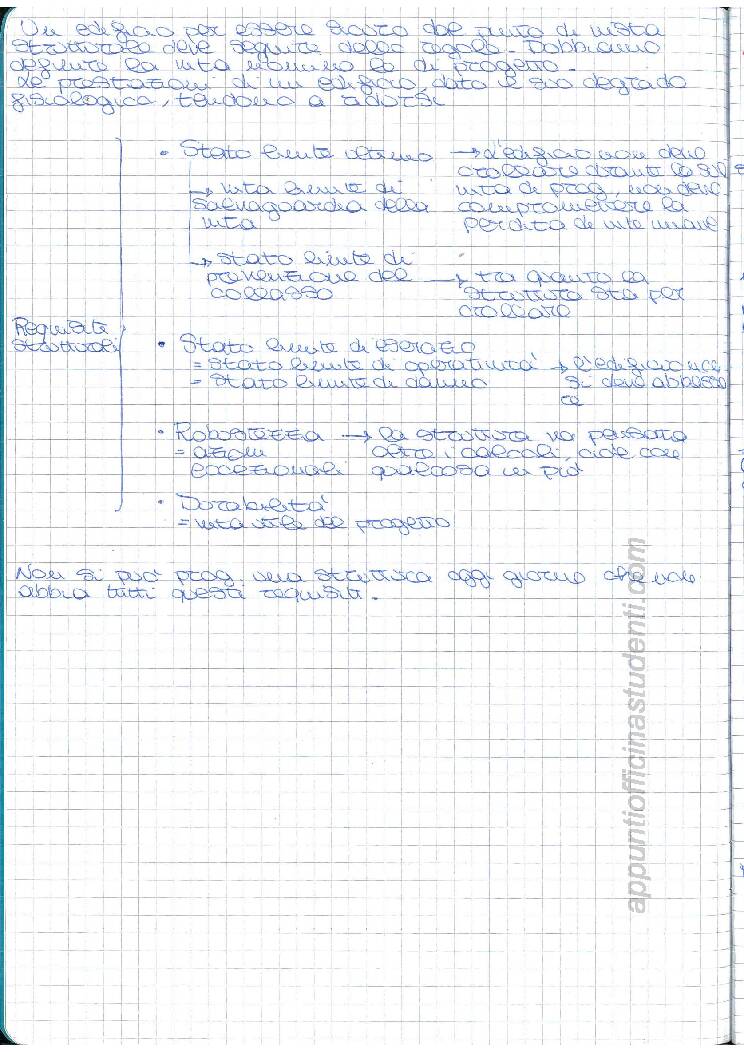 Un edificio per essere sicuro dal punto di vista
strutturale deve seguire delle regole. Dobbiamo
definire la vita nominale di progetto.
Le prestazioni di un edificio, dato il suo degrado
fisiologico, tendono a ridursi
Requisiti
strutturali
• Stato limite ultimo → L'edificio non deve
crollare durante la sua
→ vita limite di vita di prog, non deve
salvaguardia della compromettere la
vita perdita di vite umane
→ Stato limite di
prevenzione del → tra quanto la
collasso struttura sta per
crollare
• Stato limite di esercizio
= Stato limite di operatività → L'edificio
= Stato limite di danno si deve
• Robustezza → la struttura va pensata
= azioni oltre i calcoli, cioè con
eccezionali qualcosa in più
• Durabilità
= vita utile del progetto
Non si può prog. una struttura oggi giorno che non
abbia tutti questi requisiti.
appuntiofficinastudenti.com